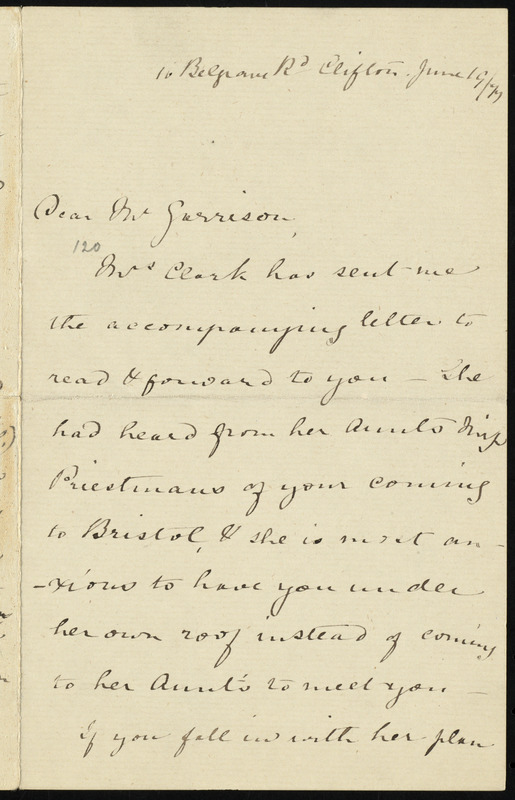 10 Belgrave Rd Clifton. June 19/77
Dear Mr Garrison,
120
Mrs Clark has sent me
the accompanying letter to
read & forward to you — She
had heard from her Aunts Miss
Priestmans of your coming
to Bristol, & she is most an-
-xious to have you under
her own roof instead of coming
to her Aunt's to meet you —
If you fall in with her plan